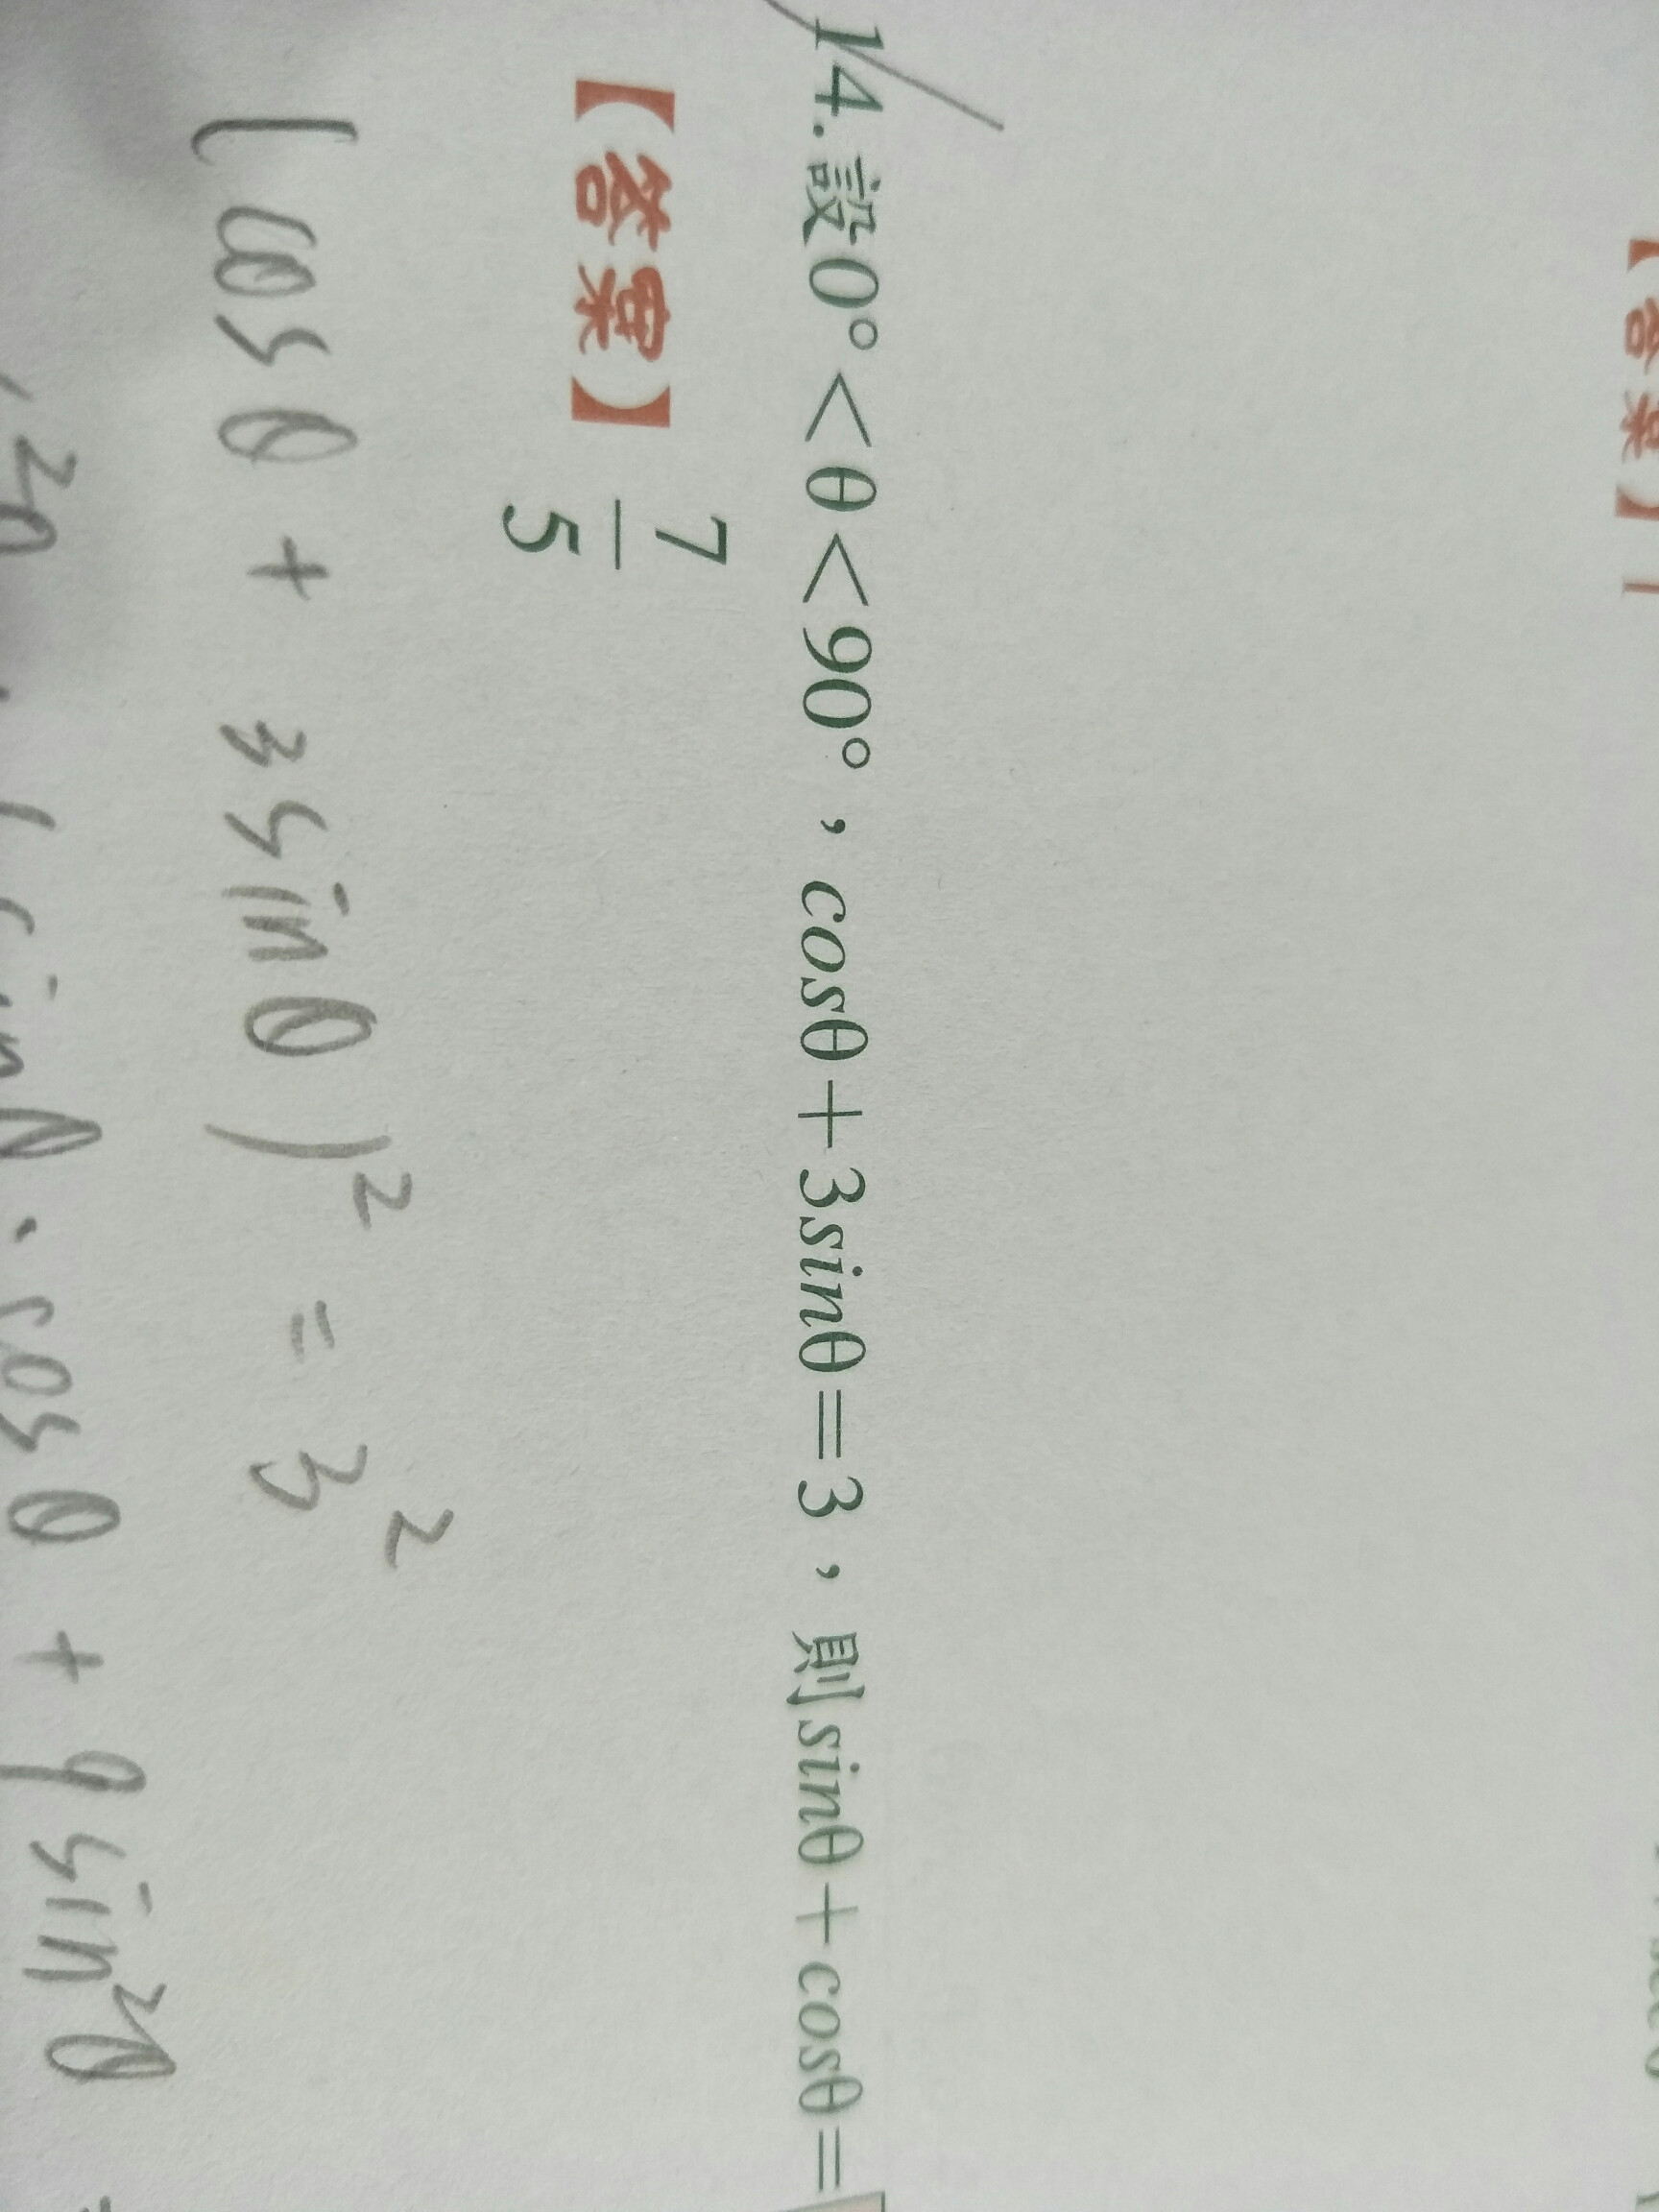 【答案】1
14.設0°<θ<90°，cosθ+3sinθ=3，則sinθ+cosθ=
【答案】7/5
(cosθ + 3sinθ)² = 3²
sinθ·cosθ + 9sin²θ